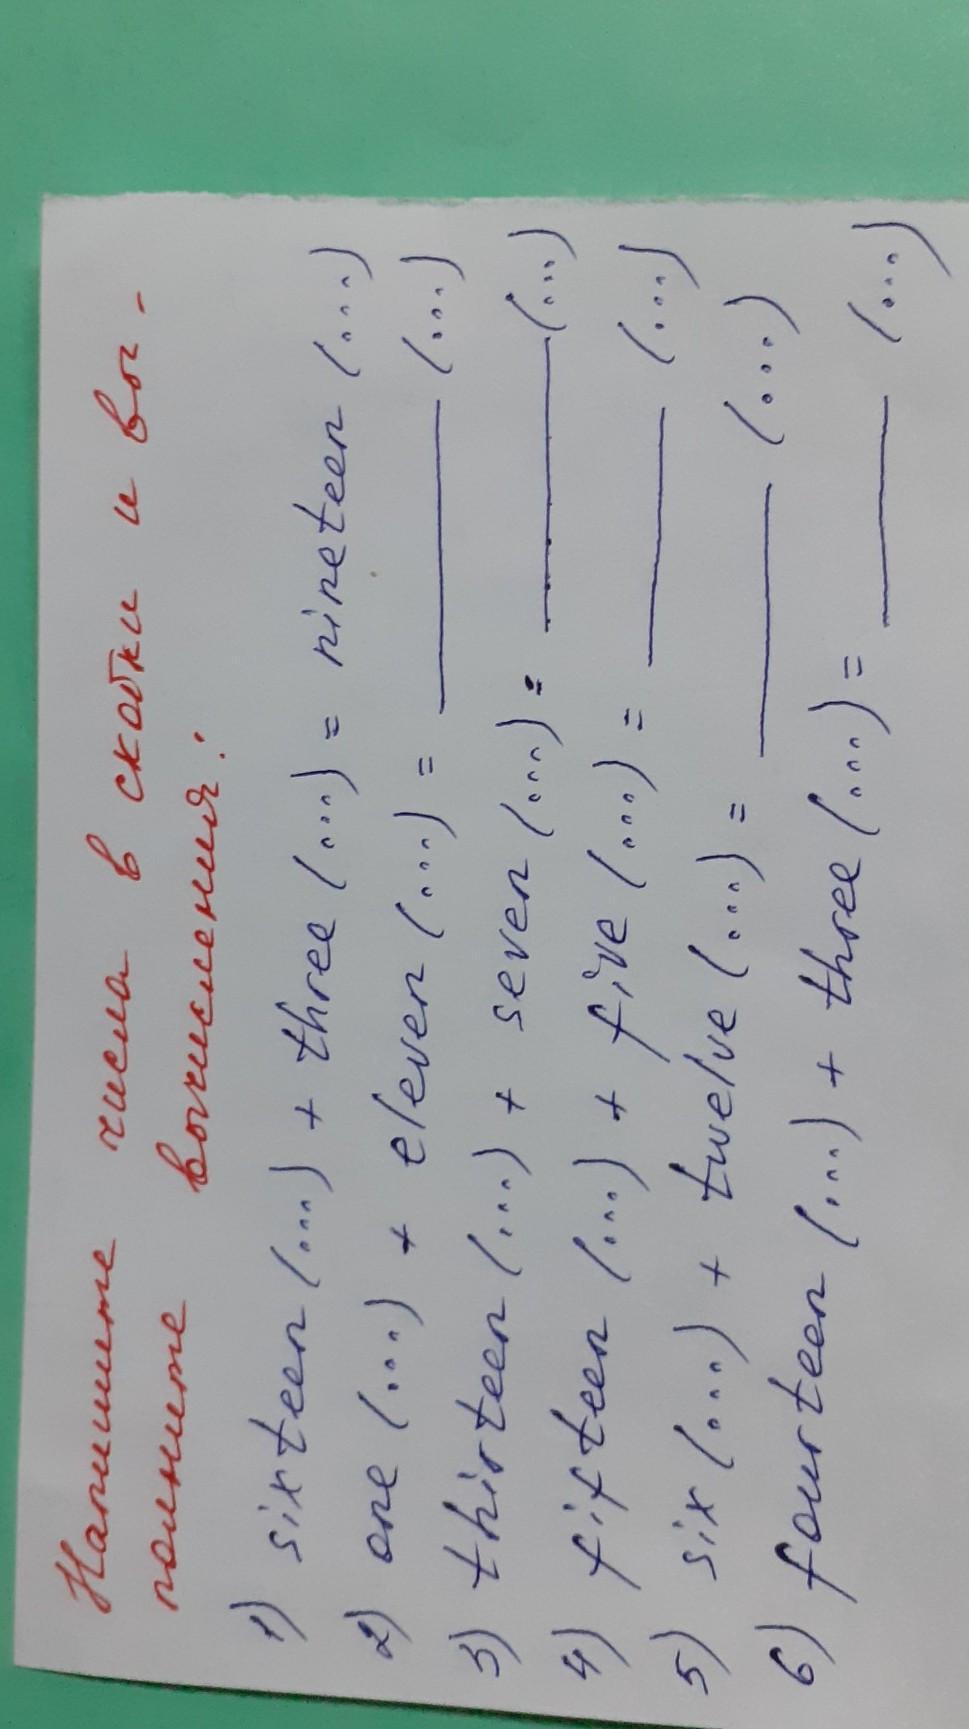 Напишите числа в скобки и вы-
полните вычисления:
1) sixteen (...) + three (...) = nineteen (....)
2) one (...) + eleven (...) = ______ (...)
3) thirteen (...) + seven (...) = ______ (...)
4) fifteen (...) + five (...) = ______ (...)
5) six (...) + twelve (...) = ______ (...)
6) fourteen (...) + three (...) = ______ (...)